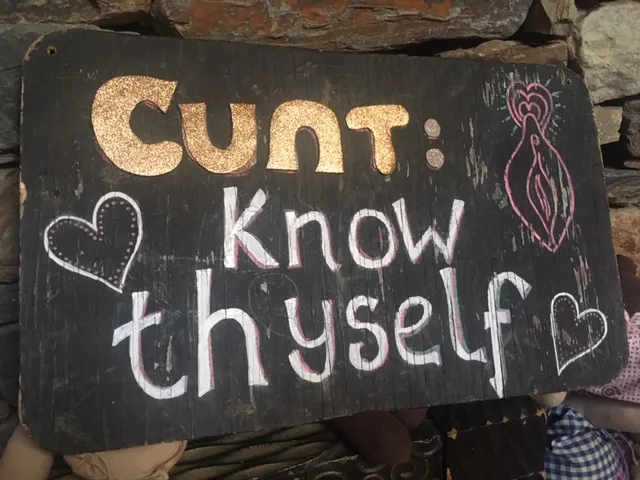 Cunt:
know
thyself